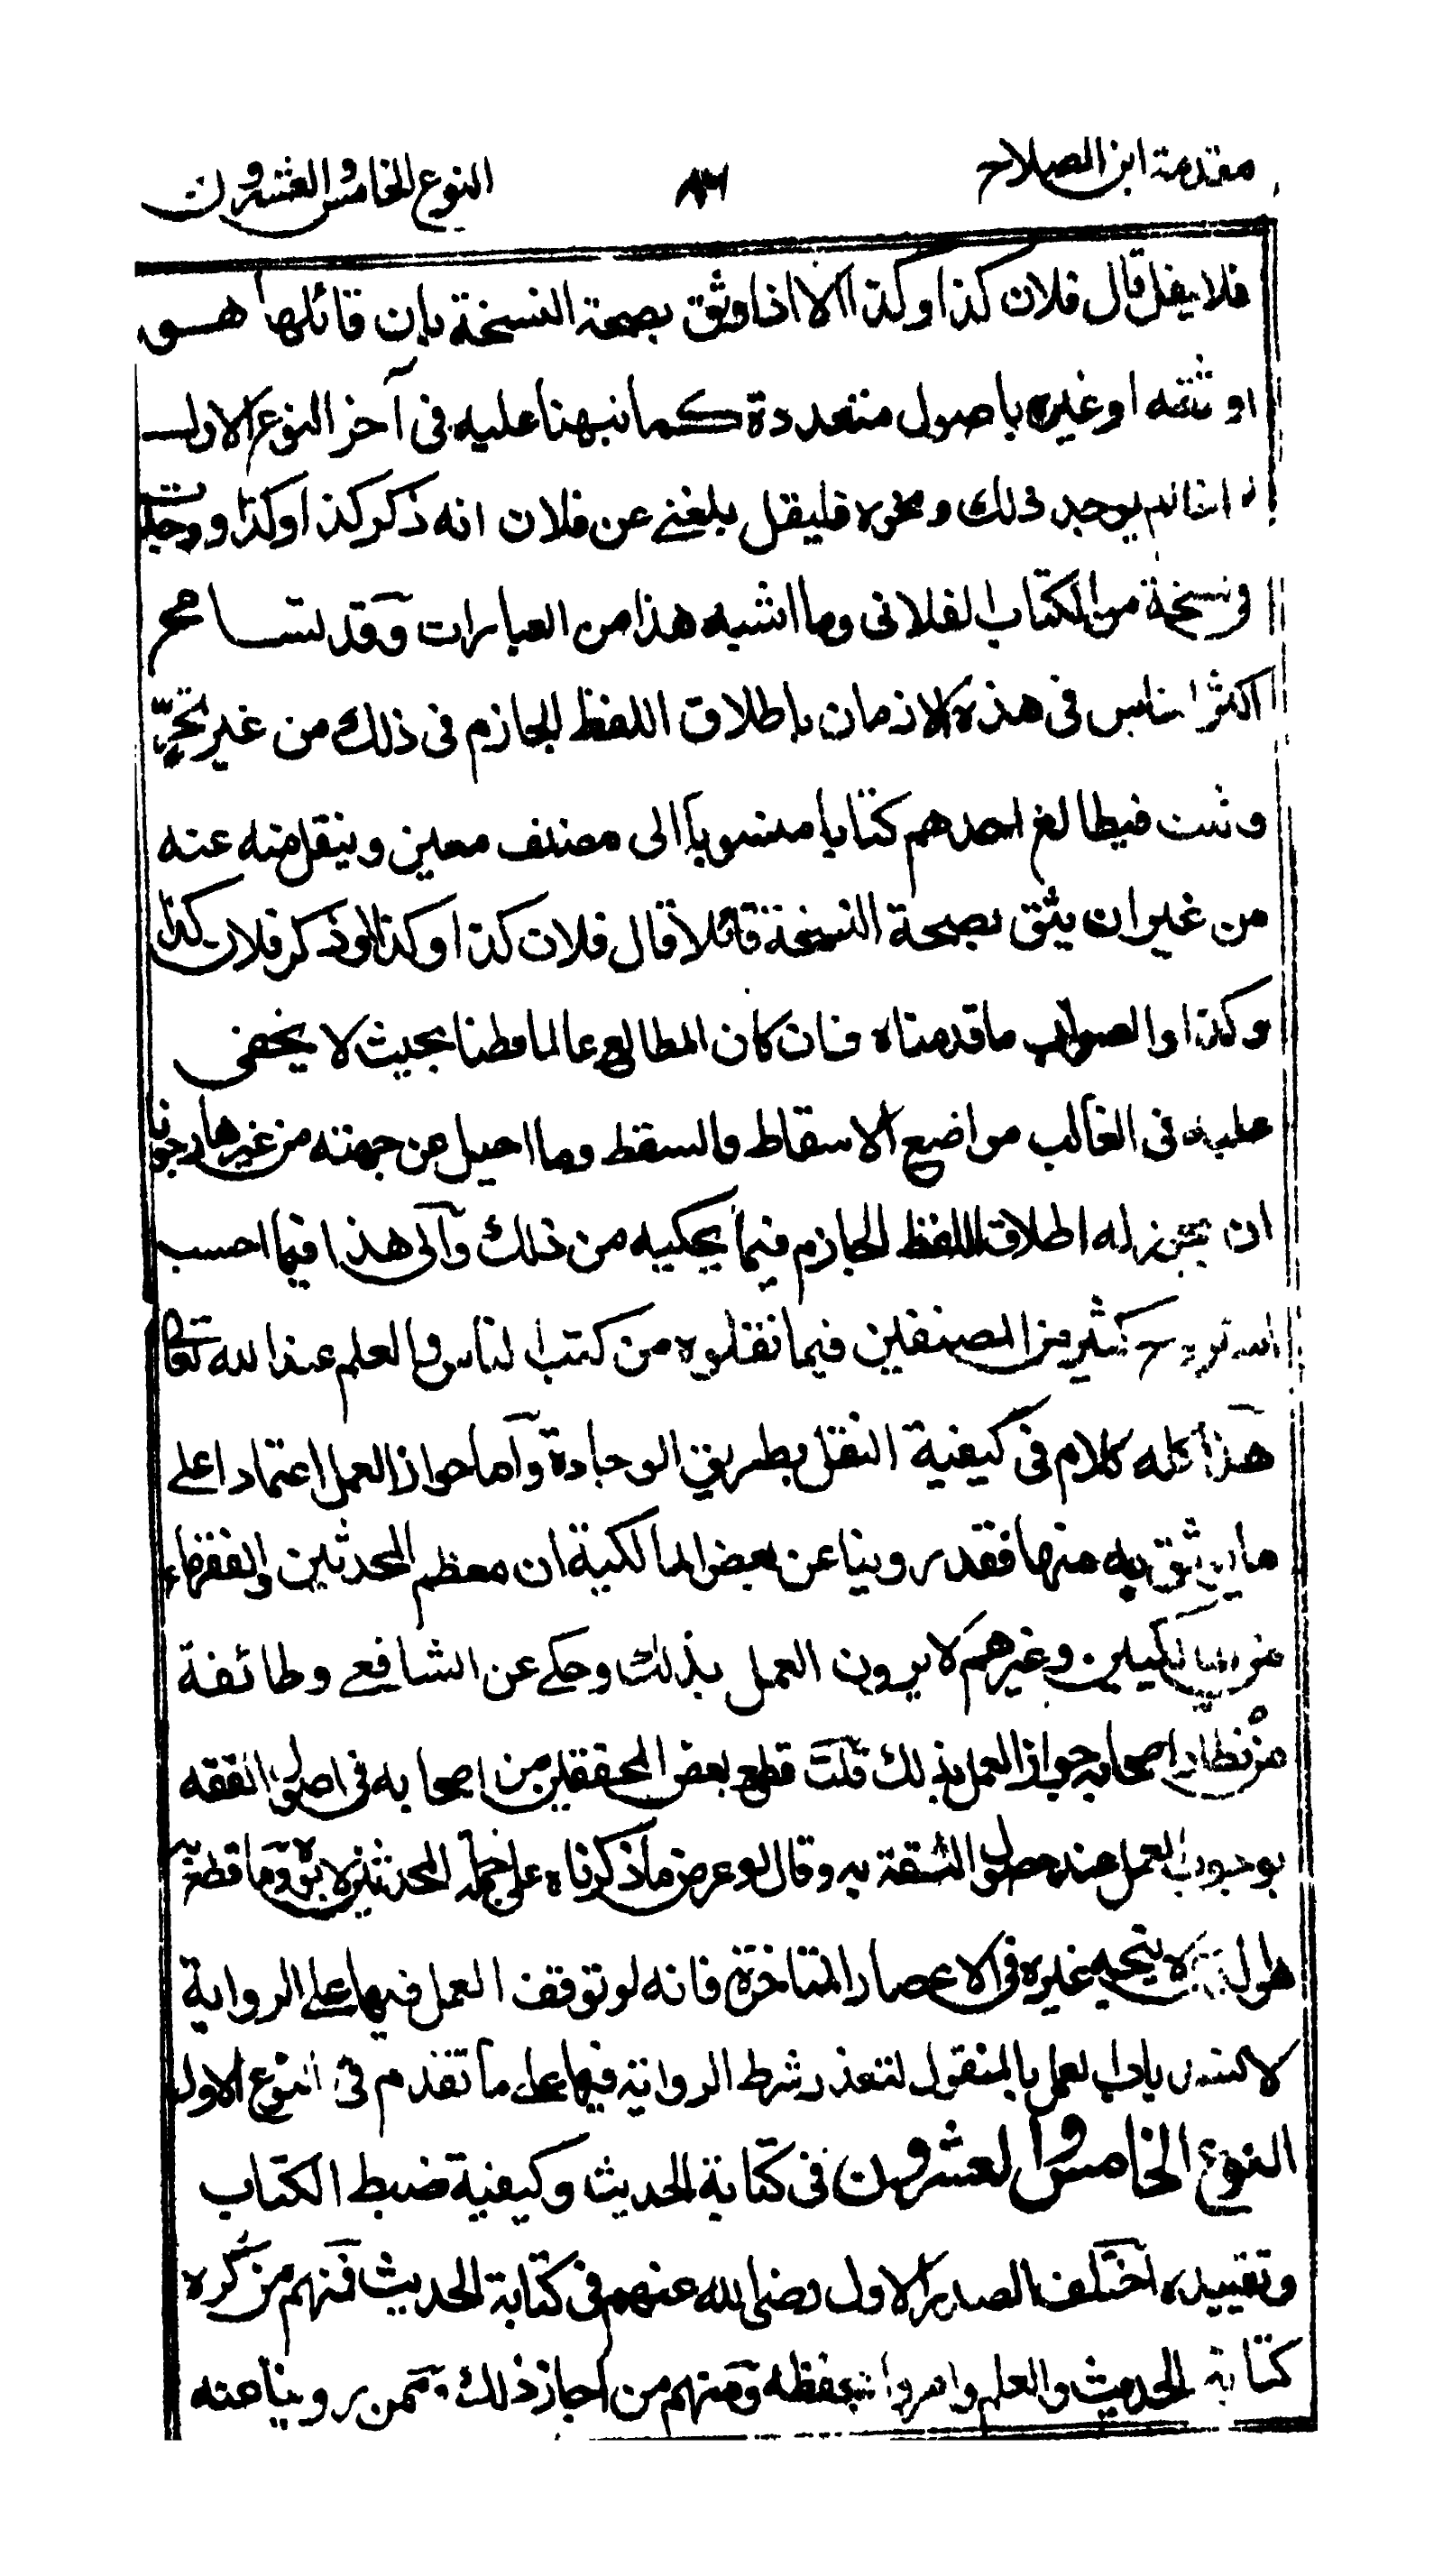 مقدمة ابن الصلاح ٨٣ النوع الخامس والعشرون
فلا يقل قال فلان كذا وكذا الا اذا وثق بصحة النسخة بان قابلها هو
او ثقة او غيره باصول متعددة كما نبهنا عليه فى آخر النوع الاول
اذا لم يوجد ذلك ونحوه فليقل بلغنى عن فلان انه ذكر كذا وكذا و وجدت
فى نسخة من الكتاب الفلانى وما اشبه هذا من العبارات وقد تسامح
اكثر الناس فى هذه الازمان باطلاق اللفظ الجازم فى ذلك من غير تحرّ
وتثبت فيطالع احدهم كتابا منسوبا الى مصنف معين وينقل منه عنه
من غير ان يثق بصحة النسخة قائلا قال فلان كذا وكذا او ذكر فلان كذا
وكذا والصواب ما قدمناه فان كان المطالع عالما فطنا بحيث لا يخفى
عليه فى الغالب مواضع الاسقاط والسقط وما احيل عن جهته من غيرها رجونا
ان يجوز له اطلاق اللفظ الجازم فيما يحكيه من ذلك والى هذا فيما احسب
استروح كثير من المصنفين فيما نقلوه من كتب الناس والعلم عند الله تعالى
هذا كله كلام فى كيفية النقل بطريق الوجادة واما جواز العمل اعتمادا على
ما يوثق به منها فقد روينا عن بعض المالكية ان معظم المحدثين والفقهاء
من المالكيين وغيرهم لا يرون العمل بذلك وحكى عن الشافعى وطائفة
من نظار اصحابه جواز العمل بذلك قلت قطع بعض المحققين من اصحابه فى اصول الفقه
بوجوب العمل عند حصول الثقة به وقال لو عرض ما ذكرناه على جملة المحدثين لابوه وما قطع به
هو الذى لا يتجه غيره فى الاعصار المتاخرة فانه لو توقف العمل فيها على الرواية
لانسد باب العمل بالمنقول لتعذر شرط الرواية فيها على ما تقدم فى النوع الاول
النوع الخامس والعشرون فى كتابة الحديث وكيفية ضبط الكتاب
وتقييده اختلف الصدر الاول رضى الله عنهم فى كتابة الحديث فمنهم من كره
كتابة الحديث والعلم وامروا بحفظه ومنهم من اجاز ذلك وممن روينا عنه